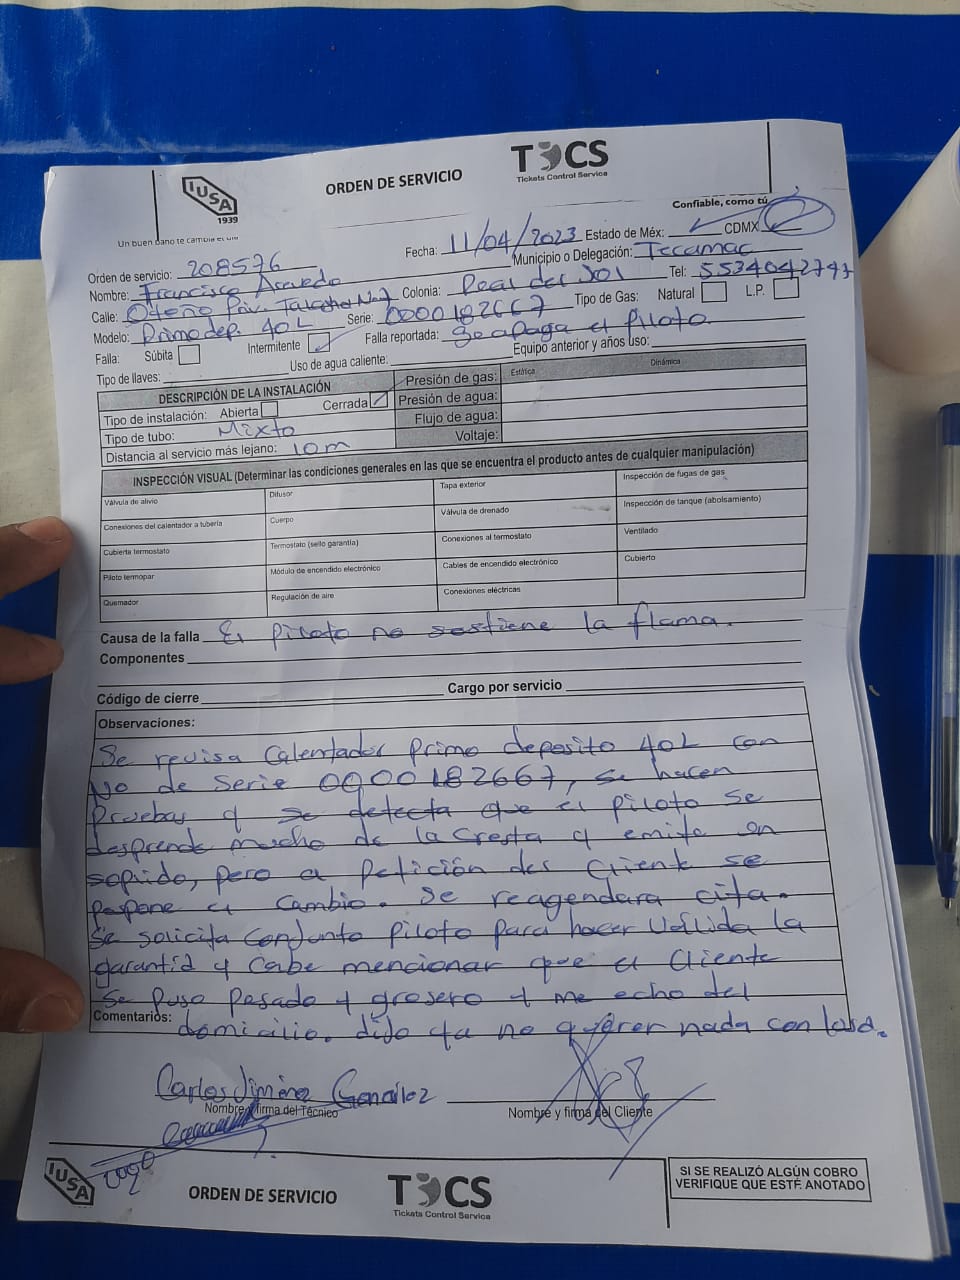 IUSA
1939
Un buen baño te cambia el día
ORDEN DE SERVICIO
TCS
Tickets Control Service
Confiable, como tú
Fecha: 11/04/2023 Estado de Méx: CDMX
Orden de servicio: 208576 Municipio o Delegación: Tecamac
Nombre: Francisco Acevedo Colonia: Real del Sol Tel:
Calle: Priv. No.7 Serie: 0000182667 Tipo de Gas: Natural L.P.
Modelo: Primo dep. 40L Falla reportada: Se apaga el piloto.
Falla: Súbita Intermitente Equipo anterior y años uso:
Tipo de llaves: Uso de agua caliente:
DESCRIPCIÓN DE LA INSTALACIÓN Presión de gas: Estática Dinámica
Tipo de instalación: Abierta Cerrada Presión de agua:
Tipo de tubo: Mixto Flujo de agua:
Distancia al servicio más lejano: 10m Voltaje:
INSPECCIÓN VISUAL (Determinar las condiciones generales en las que se encuentra el producto antes de cualquier manipulación)
Válvula de alivio Difusor Tapa exterior Inspección de fugas de gas
Conexiones del calentador a tubería Cuerpo Válvula de drenado Inspección de tanque (abolsamiento)
Cubierta termostato Termostato (sello garantía) Conexiones al termostato Ventilado
Piloto termopar Módulo de encendido electrónico Cables de encendido electrónico Cubierto
Quemador Regulación de aire Conexiones eléctricas
Causa de la falla El piloto no sostiene la flama.
Componentes
Código de cierre Cargo por servicio
Observaciones:
Se revisa Calentador Primo deposito 40L con
No de Serie 0000182667, se hacen
Pruebas y se detecta que el piloto se
desprende mucho de la cresta y emite un
sopido, pero a petición del Cliente se
pospone el cambio. Se reagendara cita.
Se solicita conjunto piloto para hacer Válida la
garantid y cabe mencionar que el Cliente
Se puso pesado y grosero y me echo del
Comentarios: domicilio. dijo ya no querer nada con Iusa.
Carlos Jiménez González
Nombre y firma del Técnico Nombre y firma del Cliente
IUSA
ORDEN DE SERVICIO
TCS
Tickets Control Service
SI SE REALIZÓ ALGÚN COBRO
VERIFIQUE QUE ESTÉ ANOTADO